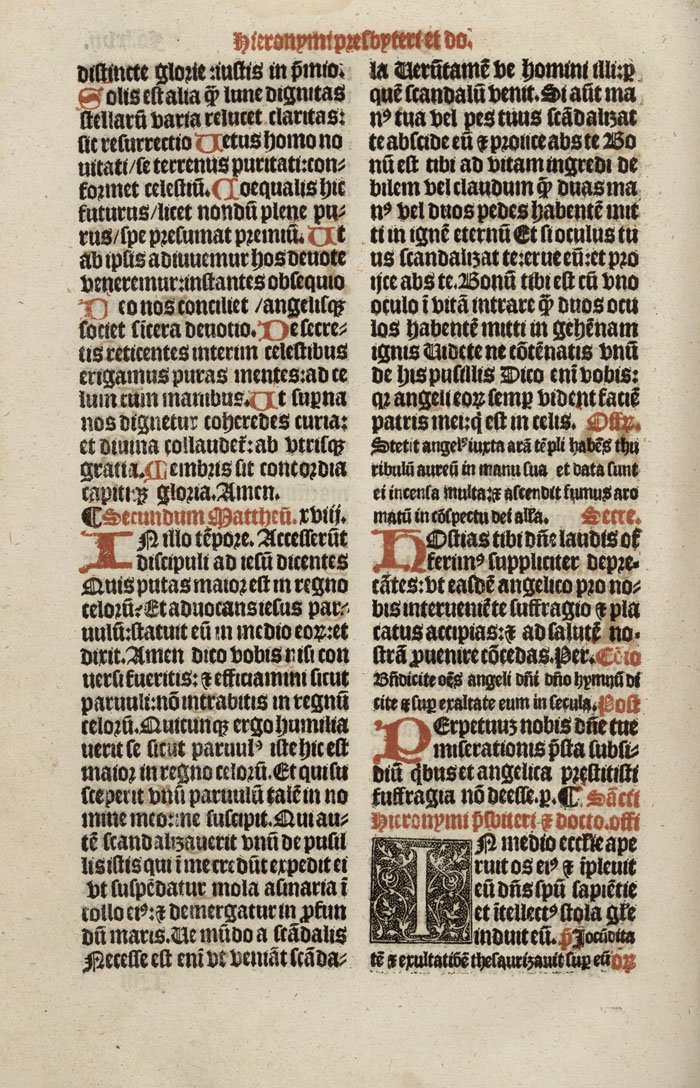 Hieronymi presbyteri et do.
distincte glorie: iustis in p̄mio.
Solis est alia q̄ȝ lune dignitas
stellarū varia relucet claritas:
sit resurrectio Uetus homo no
uitati/se terrenus puritati:con-
formet celestiū. Coequalis hic
futurus/licet nondū plene pu-
rus/spe presumat premiū. Ut
ab ipsis adiuuemur hos deuote
veneremur:instantes obsequio
Deo nos conciliet /angelisqȝ
societ sīcera deuotio. De secre-
tis reticentes interim celestibus
erigamus puras mentes:ad ce
lum cum manibus. Ut sup̄na
nos dignetur coheredes curia:
et diuina collaudet᷑:ab vtrisqȝ
gratia. Membris sit concordia
capitiqȝ gloria. Amen.
¶ Secundum Mattheū. xviij.
IN illo tēpore. Accesserūt
discipuli ad iesū dicentes
Quis putas maior est in regno
celorū. Et aduocans iesus par-
uulū:statuit eū in medio eoꝝ:et
dixit. Amen dico vobis nisi con
uersi fueritis: ⁊ efficiamini sicut
paruuli: nō intrabitis in regnū
celorū. Quicunqȝ ergo humilia
uerit se sicut paruulꝰ iste hic est
maior in regno celorū. Et qui su
sceperit vnū paruulū talē in no
mine meo:me suscipit. Qui au-
tē scandalizauerit vnū de pusil
lis istis qui ī me credūt expedit ei
vt suspēdatur mola asinaria ī
collo eiꝰ: ⁊ demergatur in ꝓfun
dū maris. Ue mūdo a scādalis
Necesse est enī vt veniāt scāda-
la Uerūtamē ve homini illi:ꝑ
quē scandalū venit. Si aūt ma
nꝰ tua vel pes tuus scādalizat
te abscide eū ⁊ proiice abs te Bo
nū est tibi ad vitam ingredi de
bilem vel claudum q̄ȝ duas ma
nꝰ vel duos pedes habentē mit
ti in ignē eternū Et si oculus tu
us scandalizat te:erue eū:et pro
ijce abs te. Bonū tibi est cū vno
oculo ī vitā intrare q̄ȝ duos ocu
los habentē mitti in gehēnam
ignis Uidete ne cōtēnatis vnū
de his pusillis Dico enī vobis:
qꝛ angeli eoꝝ semꝑ vident faciē
patris mei:q̇ est in celis. Offꝝ.
Stetit angelꝰ iuxta arā tēpli habēs thu
ribulū aureū in manu sua et data sunt
ei incensa multa:⁊ ascendit fumus aro
matū in cōspectu dei alľa. Secre.
HOstias tibi dn̄e laudis of
ferimꝰ suppliciter depre-
cātes: vt easdē angelico pro no-
bis interueniēte suffragio ⁊ pla
catus accipias: ⁊ ad salutē no-
strā ꝓuenire cōcedas. Per. Cōio
Bn̄dicite oēs angeli dn̄i dn̄o hymnū di
cite ⁊ suꝑ exaltate eum in secula. Post
PErpetuuȝ nobis dn̄e tue
miserationis p̄sta subsi-
diū q̇bus et angelica prestitisti
suffragia nō deesse. p. ¶ Sācti
Hieronymi p̄sbiteri ⁊ docto. offi
IN medio ecclīe ape
ruit os eiꝰ ⁊ īpleuit
eū dn̄s spū sapiētie
et ītellectꝰ stola gľe
induit eū. p̄ Jocūdita
tē ⁊ exultatiōē thesaurizauit suꝑ eū oꝝ